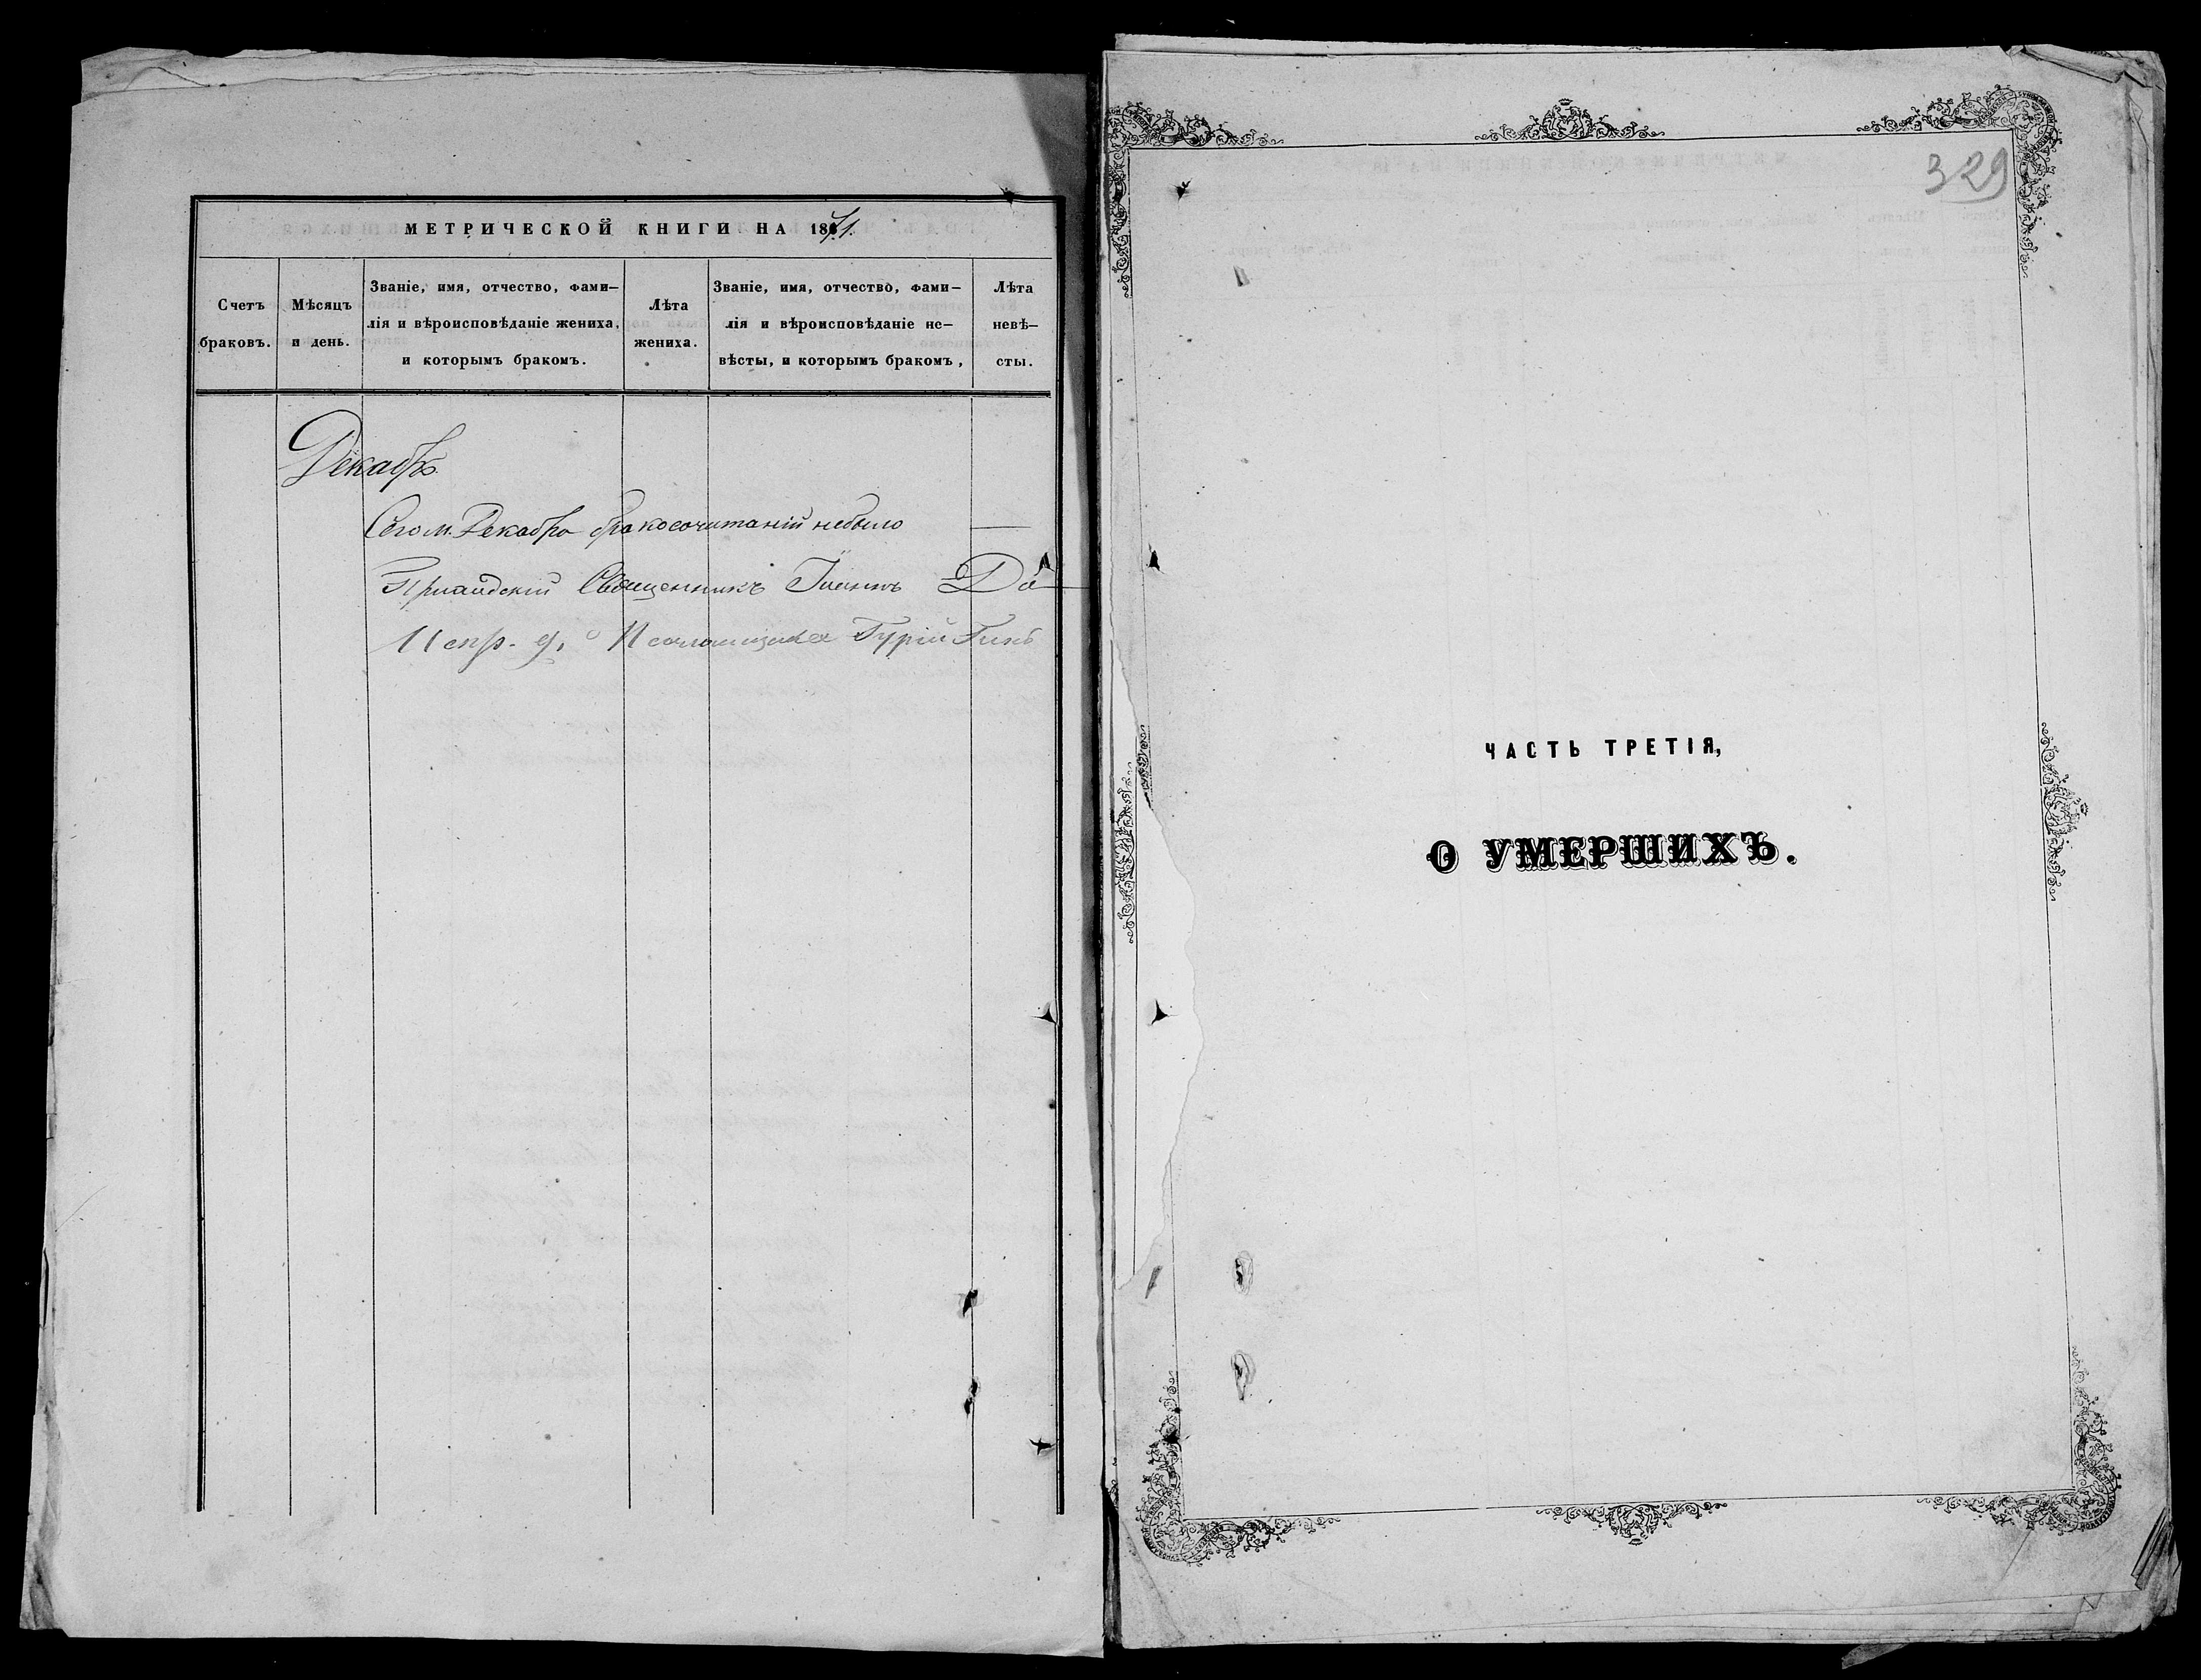 МЕТРИЧЕСКОЙ КНИГИ НА 1871.
Счетъ браковъ.
Мѣсяцъ и день.
Званіе, имя, отчество, фами–
лія и вѣроисповѣданіе жениха,
и которымъ бракомъ.
Лѣта жениха.
Званіе, имя, отчество, фами–
лія и вѣроисповѣданіе не–
вѣсты, и которымъ бракомъ,
Лѣта невѣ–
сты.
Декабрь
Сего м. Декабря бракосочитаній небыло
Священникъ Іоаннъ Да
Испр. д. Псаломщика Гурій
329
ЧАСТЬ ТРЕТІЯ,
О УМЕРШИХЪ.